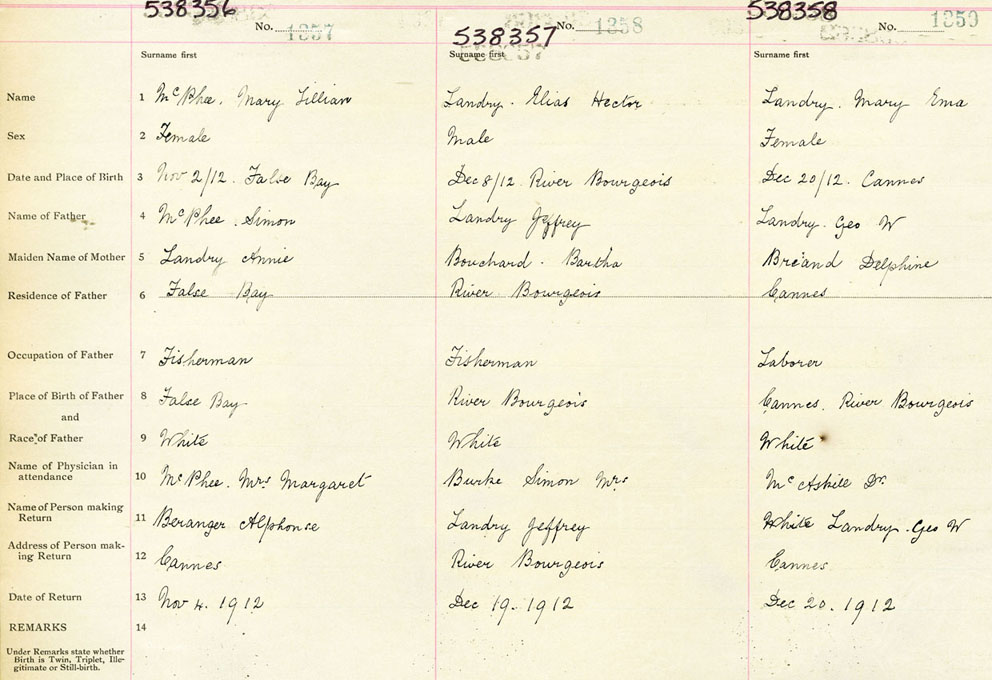 538356 538357 538358
No. 1357 No. 1358 No. 1359
Surname first Surname first Surname first
Name 1 McPhee. Mary Lillian Landry. Elias Hector Landry. Mary Ema
Sex 2 Female Male Female
Date and Place of Birth 3 Nov 2/12. False Bay Dec 8/12 River Bourgeois Dec 20/12. Cannes
Name of Father 4 McPhee. Simon Landry Jeffrey Landry. Geo W
Maiden Name of Mother 5 Landry Annie Bouchard. Bartha Breand Delphine
Residence of Father 6 False Bay River Bourgeois Cannes
Occupation of Father 7 Fisherman Fisherman Laborer
Place of Birth of Father 8 False Bay River Bourgeois Cannes. River Bourgeois
and
Race of Father 9 White White White
Name of Physician in
attendance 10 McPhee. Mrs Margaret Burke Simon Mrs McAskill Dr.
Name of Person making
Return 11 Beranger Alphonse Landry Jeffrey White Landry. Geo W
Address of Person mak-
ing Return 12 Cannes River Bourgeois Cannes
Date of Return 13 Nov 4. 1912 Dec 19. 1912 Dec 20. 1912
REMARKS 14
Under Remarks state whether
Birth is Twin, Triplet, Ille-
gitimate or Still-birth.